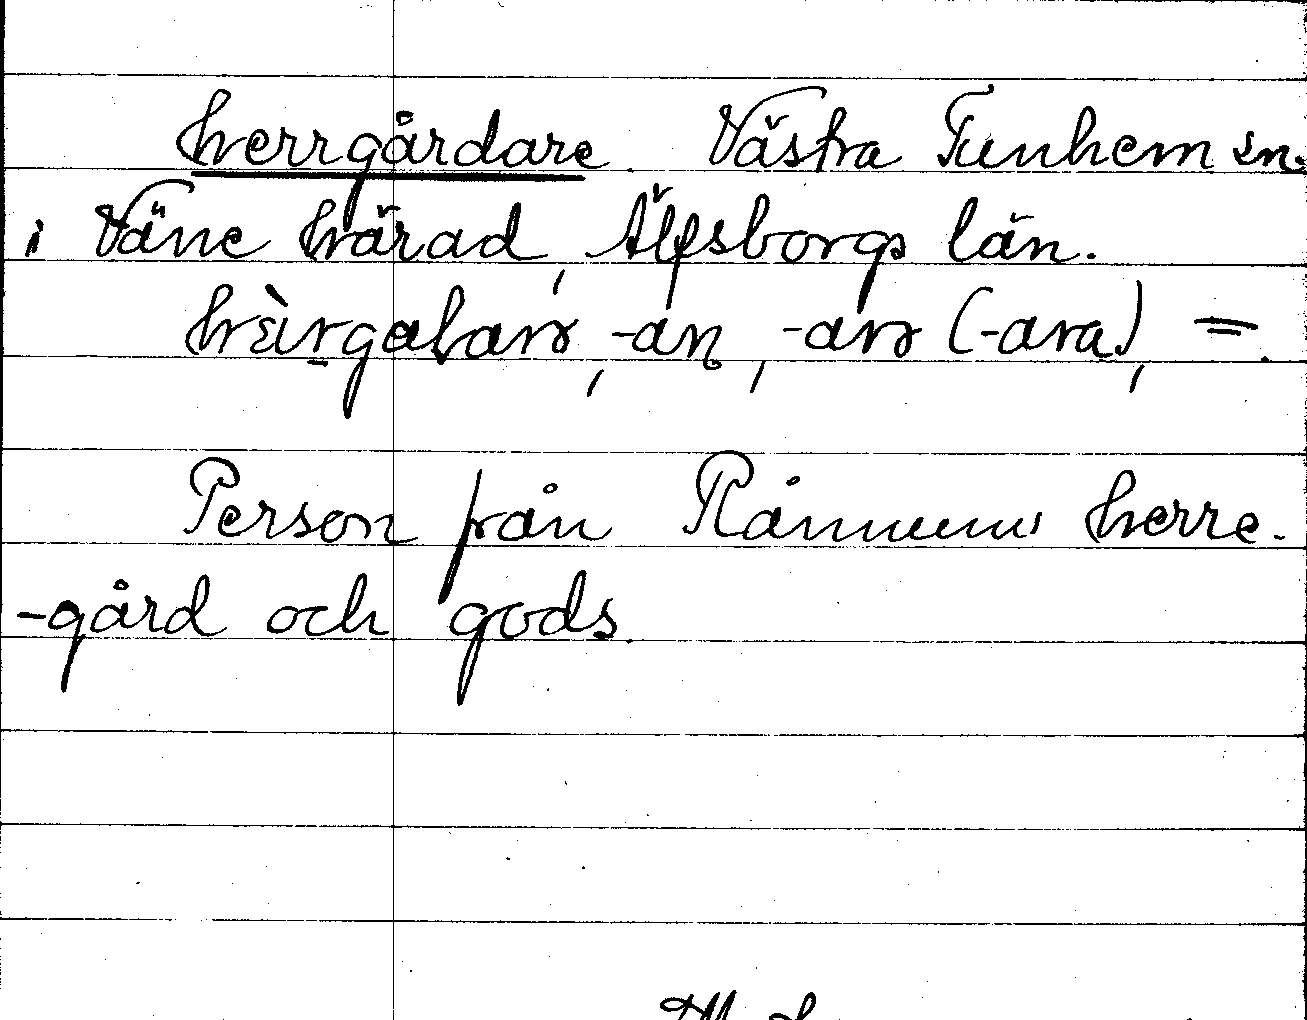 herrgårdare. Västra Tunhem sn.
i Väne härad, Älfsborgs län.
-an, -arə (-ara), =.
Person från Rånnums herre-
-gård och gods.